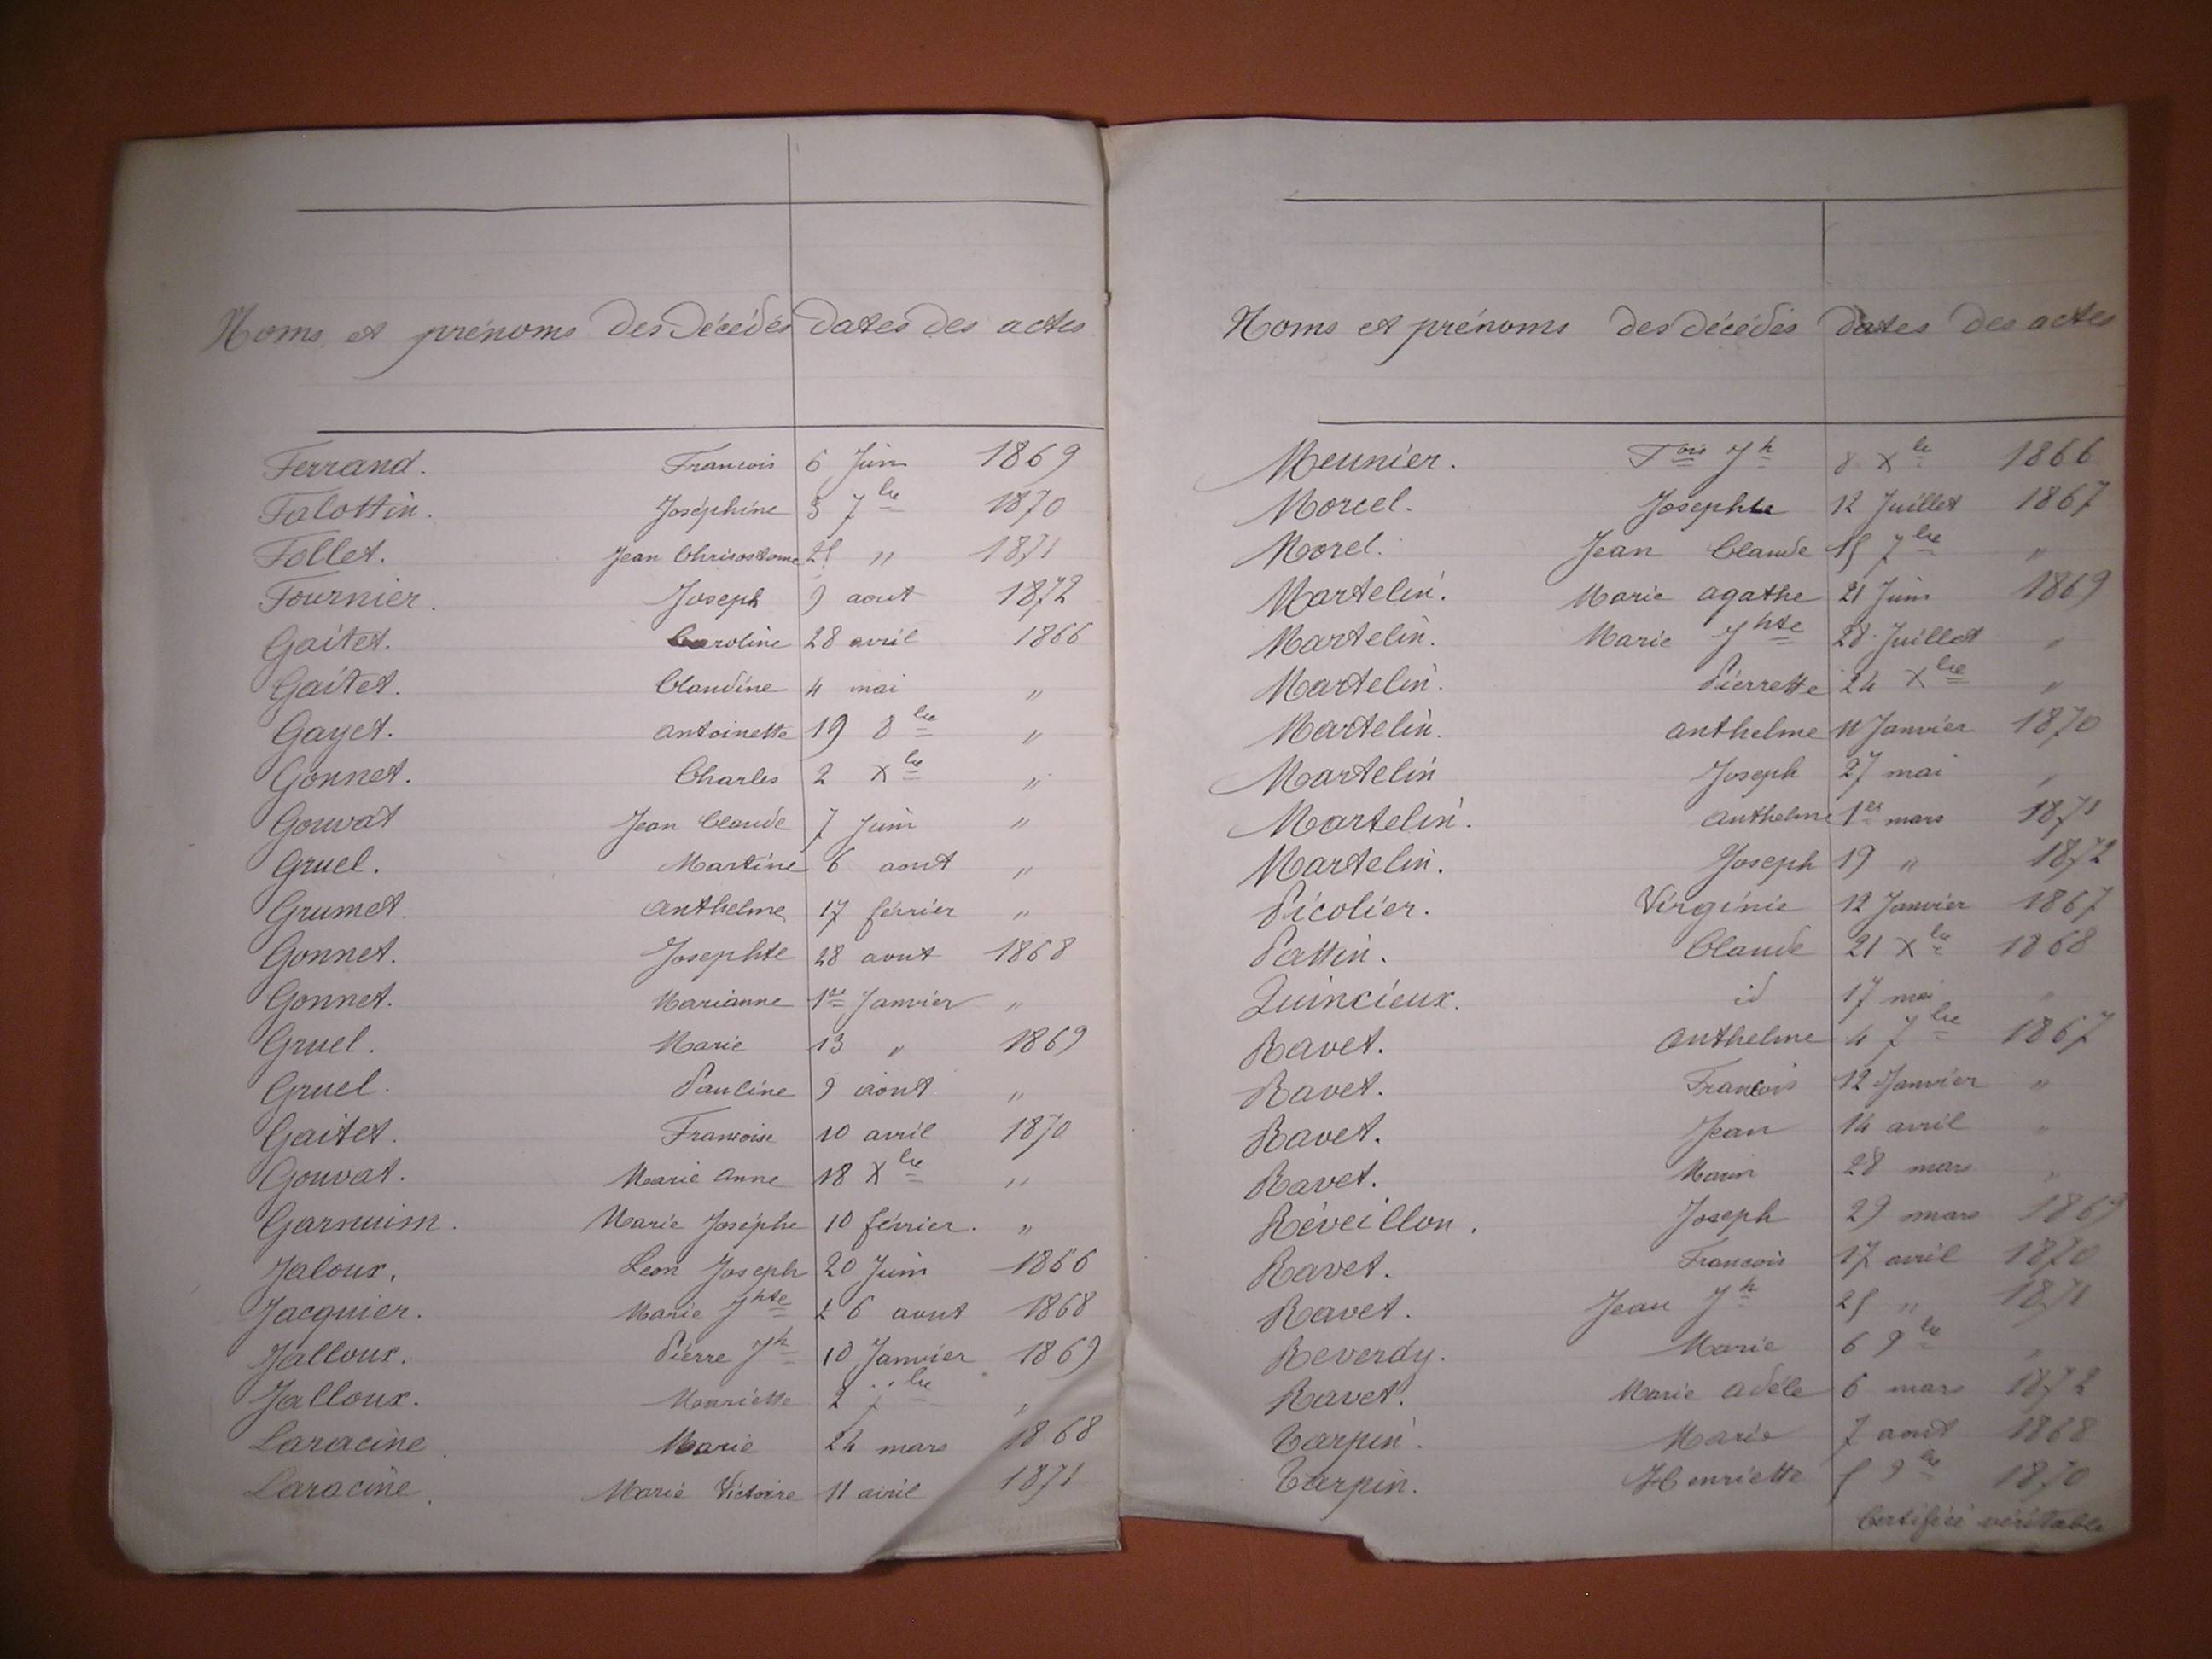 Noms et prénoms des décédés dates des actes
Ferrand. Francois 6 Juin 1869
Falottin. Joséphine 3 7bre 1870
Follet. Jean Chrisostome 25 " 1871
Fournier. Joseph 9 aout 1872
Gaitet. Caroline 28 avril 1866
Gaitet. Claudine 4 mai "
Gayet. antoinette 19 8bre "
Gonnet. Charles 2 Xbre "
Gouvat Jean Claude 7 Juin "
Gruel. Martine 6 aout "
Grumet. anthelme 17 février "
Gonnet. Josephte 28 aout 1868
Gonnet. Marianne 1er Janvier "
Gruel. Marie 13 " 1869
Gruel. Pauline 9 aout "
Gaitet. Francoise 10 avril 1870
Gouvat. Marie anne 18 Xbre "
Garnuim. Marie Joséphe 10 février. "
Jaloux. Leon Joseph 20 Juin 1866
Jacquier. Marie Jhte 26 aout 1868
Jalloux. Pierre Jh 10 Janvier 1869
Jalloux. Mariette 2 7bre "
Laracine. Marie 24 mars 1868
Laracine. Marie Victoire 11 avril 1871
Noms et prénoms des décédés dates des actes
Meunier. Fois Jh 8 Xbre 1866
Morcel. Josephte 12 Juillet 1867
Morel. Jean Claude 15 7bre "
Martelin. Marie agathe 21 Juin 1869
Martelin. Marie Jhte 28 Juillet "
Martelin. Pierrette 24 Xbre "
Martelin. anthelme 11 Janvier 1870
Martelin Joseph 27 mai "
Martelin. anthelme 1er mars 1871
Martelin. Joseph 19 " 1872
Picolier. Virginie 12 Janvier 1867
Pattin. Claude 21 Xbre 1868
Quincieux. id 17 mai "
Ravet. anthelme 4 7bre 1867
Ravet. Francois 12 Janvier "
Ravet. Jean 14 avril "
Ravet. Marin 28 mars "
Réveillon. Joseph 29 mars 1869
Ravet. Francois 17 avril 1870
Ravet. Jean Jh 25 " 1871
Reverdy. Marie 6 9bre "
Ravet. Marie adéle 6 mars 1872
Tarpin. Marie 7 aout 1868
Tarpin. Henriette 5 9bre 1870
Certifiée véritable